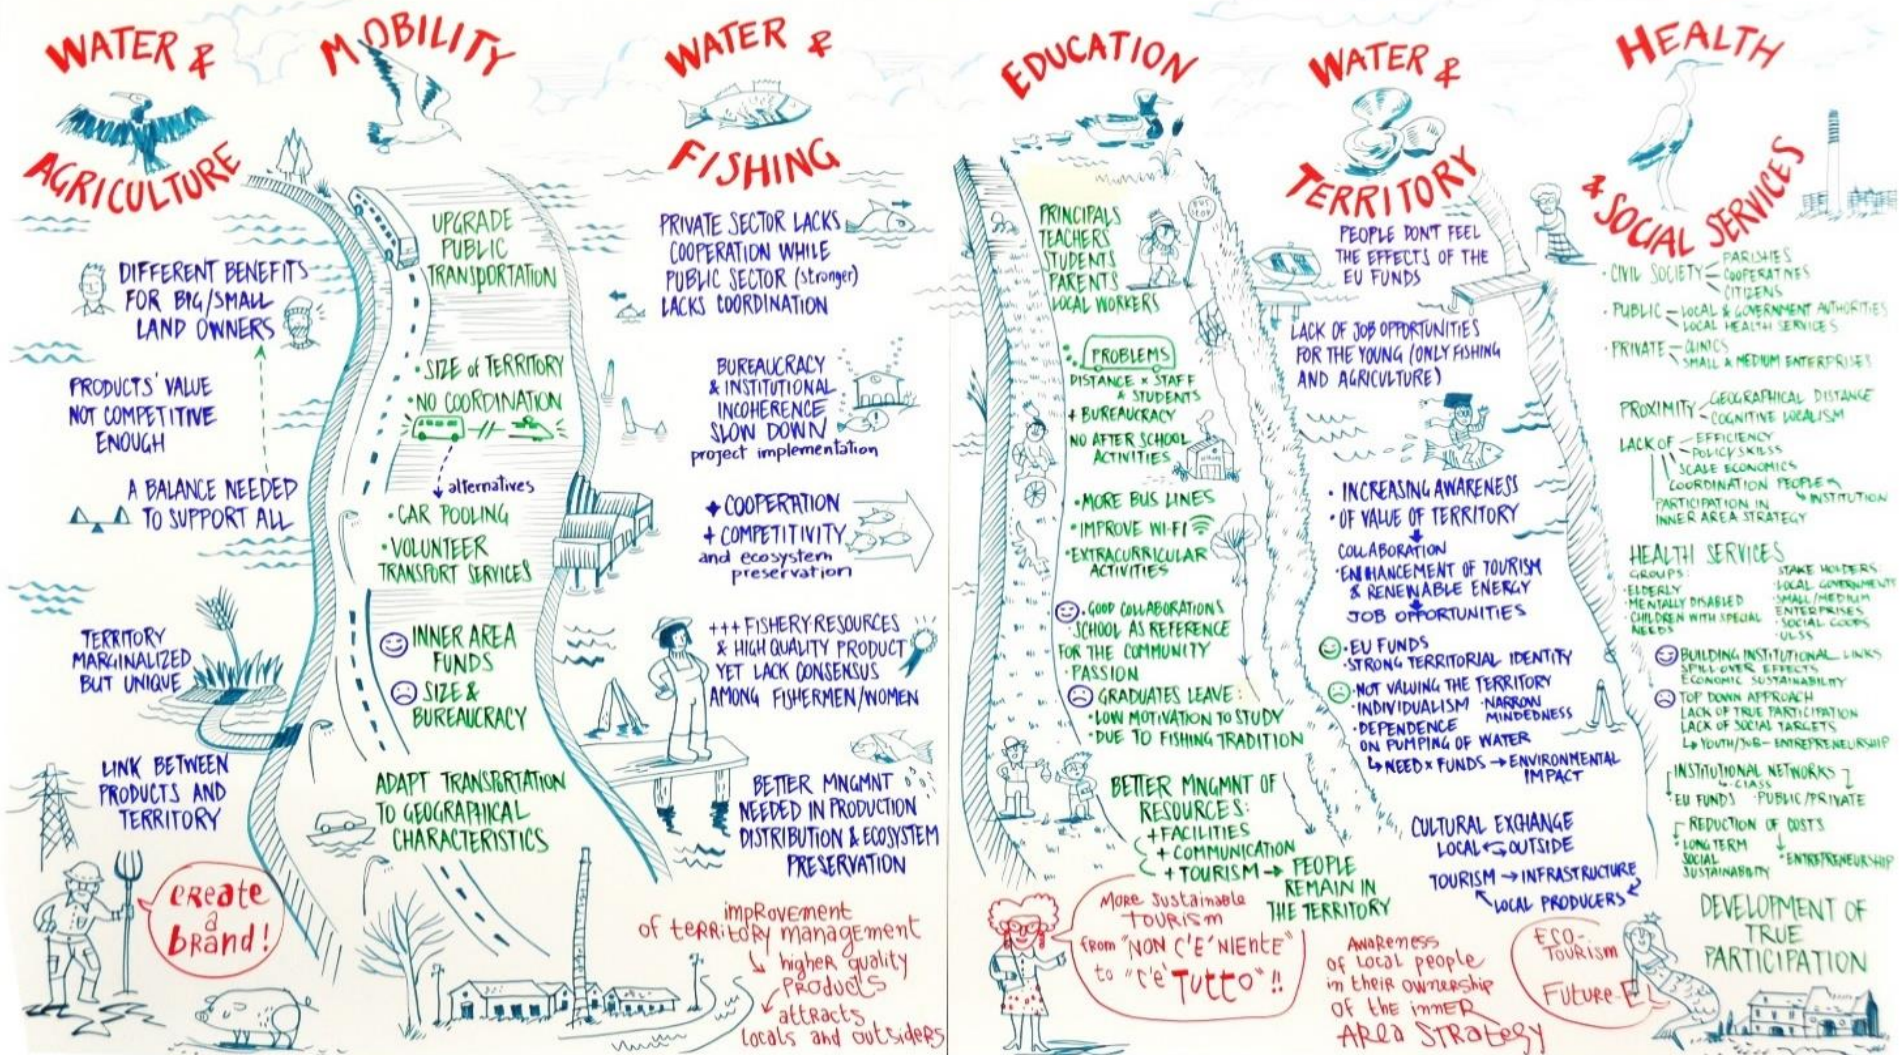 WATER &
AGRICULTURE
DIFFERENT BENEFITS
FOR BIG/SMALL
LAND OWNERS
PRODUCTS' VALUE
NOT COMPETITIVE
ENOUGH
A BALANCE NEEDED
TO SUPPORT ALL
TERRITORY
MARGINALIZED
BUT UNIQUE
LINK BETWEEN
PRODUCTS AND
TERRITORY
CREATE
a
bRAND!
MOBILITY
UPGRADE
PUBLIC
TRANSPORTATION
• SIZE of TERRITORY
• NO COORDINATION
alternatives
• CAR POOLING
• VOLUNTEER
TRANSPORT SERVICES
INNER AREA
FUNDS
SIZE &
BUREAUCRACY
ADAPT TRANSPORTATION
TO GEOGRAPHICAL
CHARACTERISTICS
WATER &
FISHING
PRIVATE SECTOR LACKS
COOPERATION WHILE
PUBLIC SECTOR (stronger)
LACKS COORDINATION
BUREAUCRACY
& INSTITUTIONAL
INCOHERENCE
SLOW DOWN
project implementation
+ COOPERATION
+ COMPETITIVITY
and ecosystem
preservation
+++ FISHERY RESOURCES
& HIGH QUALITY PRODUCT
YET LACK CONSENSUS
AMONG FISHERMEN/WOMEN
BETTER MNGMNT
NEEDED IN PRODUCTION
DISTRIBUTION & ECOSYSTEM
PRESERVATION
improvement
of territory management
higher quality
products
attracts
locals and outsiders
EDUCATION
PRINCIPALS
TEACHERS
STUDENTS
PARENTS
LOCAL WORKERS
BUS
STOP
PROBLEMS
DISTANCE x STAFF
& STUDENTS
+ BUREAUCRACY
NO AFTER SCHOOL
ACTIVITIES
• MORE BUS LINES
• IMPROVE WI-FI
• EXTRACURRICULAR
ACTIVITIES
• GOOD COLLABORATIONS
• SCHOOL AS REFERENCE
FOR THE COMMUNITY
• PASSION
GRADUATES LEAVE:
• LOW MOTIVATION TO STUDY
• DUE TO FISHING TRADITION
BETTER MNGMNT OF
RESOURCES:
+ FACILITIES
+ COMMUNICATION
+ TOURISM → PEOPLE
REMAIN IN
THE TERRITORY
More sustainable
TOURISM
from "NON C'E' NIENTE"
to "C'è TUTTO"!!
WATER &
TERRITORY
PEOPLE DON'T FEEL
THE EFFECTS OF THE
EU FUNDS
LACK OF JOB OPPORTUNITIES
FOR THE YOUNG (ONLY FISHING
AND AGRICULTURE)
• INCREASING AWARENESS
• OF VALUE OF TERRITORY
COLLABORATION
• ENHANCEMENT OF TOURISM
& RENEWABLE ENERGY
JOB OPPORTUNITIES
• EU FUNDS
• STRONG TERRITORIAL IDENTITY
• NOT VALUING THE TERRITORY
• INDIVIDUALISM • NARROW
MINDEDNESS
• DEPENDENCE
ON PUMPING OF WATER
↳ NEED x FUNDS → ENVIRONMENTAL
IMPACT
CULTURAL EXCHANGE
LOCAL ⇆ OUTSIDE
TOURISM → INFRASTRUCTURE
LOCAL PRODUCERS
Awareness
of local people
in their ownership
of the inner
AREA STRATEGY
HEALTH
& SOCIAL SERVICES
• CIVIL SOCIETY
PARISHES
COOPERATIVES
CITIZENS
• PUBLIC
LOCAL & GOVERNMENT AUTHORITIES
LOCAL HEALTH SERVICES
• PRIVATE
CLINICS
SMALL & MEDIUM ENTERPRISES
PROXIMITY
GEOGRAPHICAL DISTANCE
COGNITIVE LOCALISM
LACK OF
EFFICIENCY
POLICY SKILSS
SCALE ECONOMICS
COORDINATION PEOPLE
INSTITUTION
PARTICIPATION IN
INNER AREA STRATEGY
HEALTH SERVICES
GROUPS:
• ELDERLY
• MENTALLY DISABLED
• CHILDREN WITH SPECIAL
NEEDS
STAKE HOLDERS:
• LOCAL GOVERNMENTS
• SMALL/MEDIUM
ENTERPRISES
• SOCIAL COOPS
• ULSS
BUILDING INSTITUTIONAL LINKS
SPILL-OVER EFFECTS
ECONOMIC SUSTAINABILITY
TOP DOWN APPROACH
LACK OF TRUE PARTICIPATION
LACK OF SOCIAL TARGETS
↳ YOUTH/JOB - ENTREPRENEURSHIP
INSTITUTIONAL NETWORKS
• EU FUNDS • PUBLIC/PRIVATE
REDUCTION OF COSTS
• LONG TERM
SOCIAL
SUSTAINABILITY
• ENTREPRENEURSHIP
DEVELOPMENT OF
TRUE
PARTICIPATION
ECO-
TOURISM